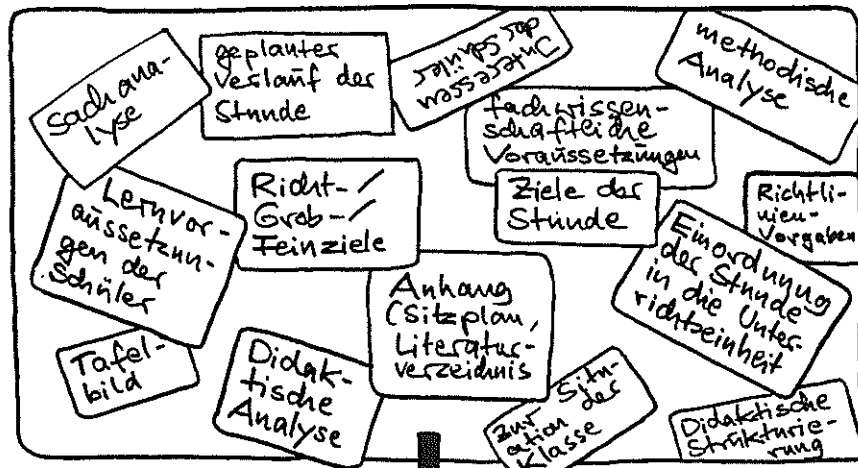 Sachana-
lyse
geplanter
Verlauf der
Stunde
Interessen
der Schüler
methodische
Analyse
fachwissen-
schaftliche
Voraussetzungen
Lernvor-
aussetzun-
gen der
Schüler
Richt-/
Grob-/
Feinziele
Ziele der
Stunde
Richtli-
nien-
Vorgaben
Einordnung
der Stunde
in die Unter-
richtseinheit
Anhang
(Sitzplan,
Literatur-
verzeichnis
Tafel-
bild
Didak-
tische
Analyse
Zur Situ-
ation der
Klasse
Didaktische
Strukturie-
rung